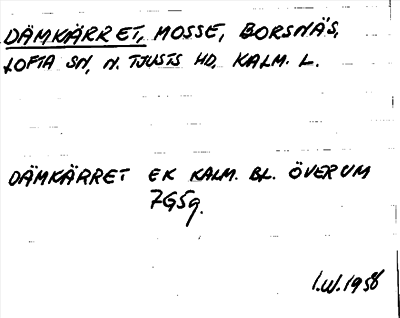 DÄMKÄRRET, MOSSE, BORSNÄS,
LOFTA SN, N. TJUSTS HD, KALM. L.
DÄMKÄRRET EK KALM. BL. ÖVERUM
7G5g.
I.W. 1958